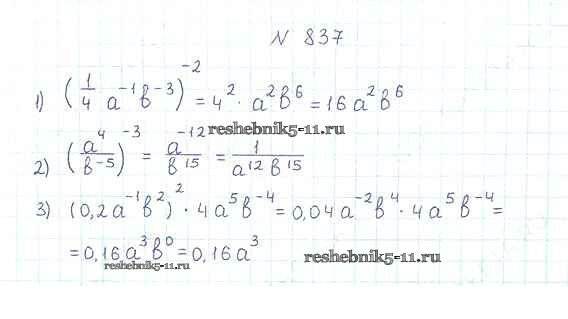 № 837
1) (1/4 a⁻¹b⁻³)⁻² = 4² · a²b⁶ = 16a²b⁶
reshebnik5-11.ru
2) (a⁴/b⁻⁵)⁻³ = a⁻¹²/b¹⁵ = 1/a¹²b¹⁵
3) (0,2a⁻¹b²)² · 4a⁵b⁻⁴ = 0,04a⁻²b⁴ · 4a⁵b⁻⁴ =
= 0,16a³b⁰ = 0,16a³
reshebnik5-11.ru
reshebnik5-11.ru